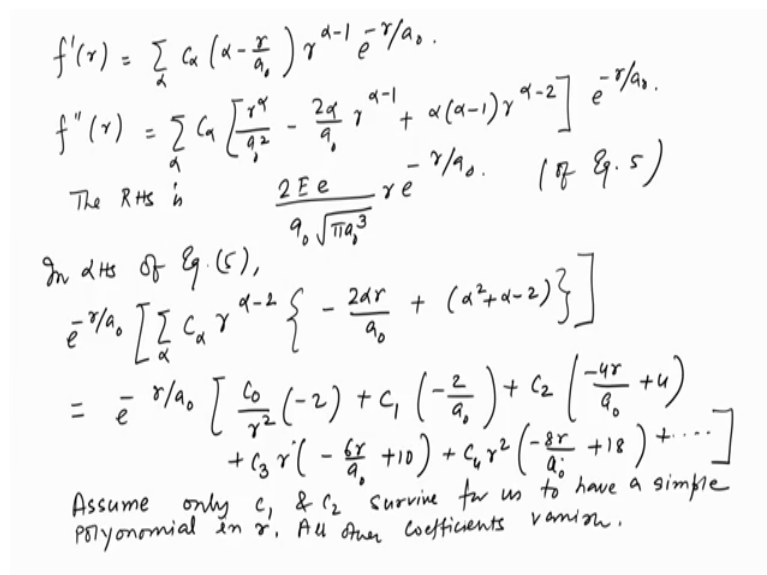 f'(r) = Σ_α C_α (α - r/a₀) r^(α-1) e^(-r/a₀).
f''(r) = Σ_α C_α [r^α/a₀² - 2α/a₀ r^(α-1) + α(α-1) r^(α-2)] e^(-r/a₀).
The RHS is 2Ee/(a₀√(πa₀³)) r e^(-r/a₀). (of Eq. 5)
In LHS of Eq. (5),
e^(-r/a₀) [Σ_α C_α r^(α-2) { - 2αr/a₀ + (α²+α-2)}]
= e^(-r/a₀) [C₀/r² (-2) + C₁ (-2/a₀) + C₂ (-4r/a₀ + 4)
+ C₃ r (- 6r/a₀ + 10) + C₄ r² (-8r/a₀ + 18) + ....]
Assume only C₁ & C₂ survive for us to have a simple
polyonomial in r. All other coefficients vanish.